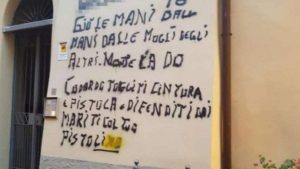 GIÙ LE MANI DALL
MANS DALLE MOGLI DEGLI
ALTRI. MONTE CADO
CODARDO TOGLITI CINTURA
E PISTOLA E DIFENDITI DAI
MARITI COL TUO
PISTOLINO